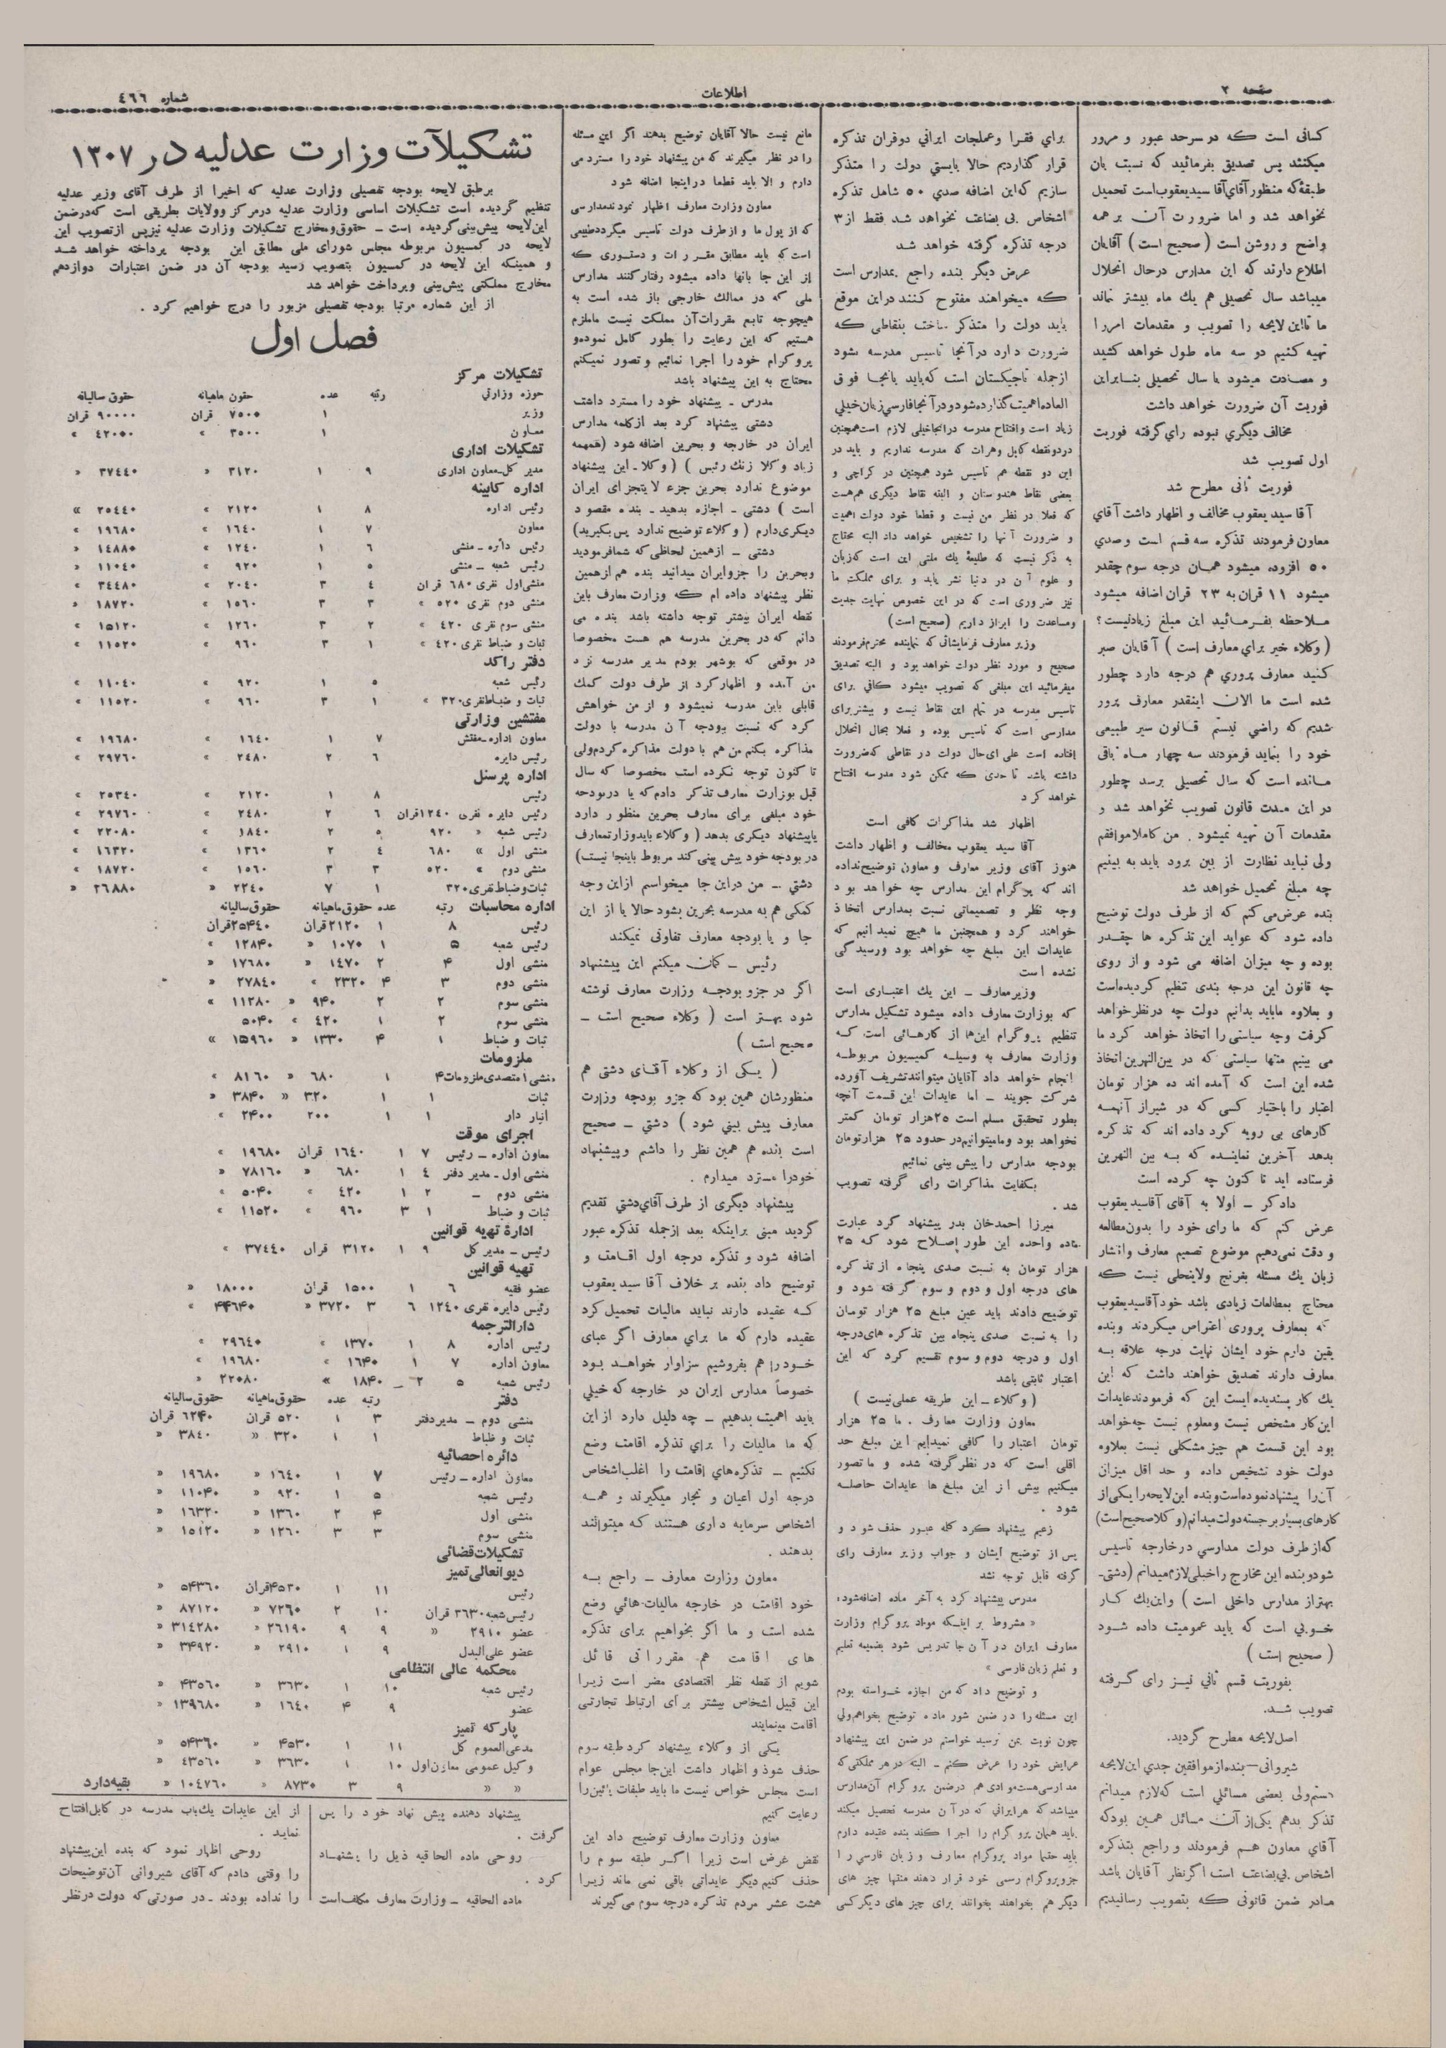 صفحه ۲
اطلاعات
شماره ٤٦٦
کسانی است که دو سرحد عبور و مرور
میکنند پس تصدیق بفرمائید که نسبت بان
طبقهٔ که منظور آقای آقا سید یعقوب است تحمیل
نخواهد شد و اما ضرورت آن بر همه
واضح و روشن است ( صحیح است ) آقایان
اطلاع دارند که این مدارس در حال انحلال
میباشد سال تحصیلی هم یك ماه بیشتر نمانده
ما تا این لایحه را تصویب و مقدمات امر را
تهیه کنیم دو سه ماه طول خواهد کشید
و مصادف میشود با سال تحصیلی بنابراین
فوریت آن ضرورت خواهد داشت
مخالف دیگری نبوده رای گرفته فوریت
اول تصویب شد
فوریت ثانی مطرح شد
آقا سید یعقوب مخالف و اظهار داشت آقای
معاون فرمودند تذکره سه قسم است و صدی
٥٠ افزوده میشود همان درجه سوم چقدر
میشود ١١ قران به ٢٣ قران اضافه میشود
ملاحظه بفرمائید این مبلغ زیاد نیست؟
( وکلاء خیر برای معارف است ) آقایان صبر
کنید معارف پروری هم درجه دارد چطور
شده است ما الان اینقدر معارف پرور
شدیم که راضی نیستم قانون سیر طبیعی
خود را بنماید فرمودند سه چهار ماه باقی
مانده است که سال تحصیلی برسد چطور
در این مدت قانون تصویب نخواهد شد و
مقدمات آن تهیه نمیشود . من کاملا موافقم
ولی نباید نظارت از بین برود باید به بینیم
چه مبلغ تحمیل خواهد شد
بنده عرض می کنم که از طرف دولت توضیح
داده شود که عواید این تذکره ها چقدر
بوده و چه میزان اضافه می شود و از روی
چه قانون این درجه بندی تنظیم گردیده است
و بعلاوه ما باید بدانیم دولت چه در نظر خواهد
گرفت وچه سیاستی را اتخاذ خواهد کرد ما
می بینیم منتها سیاستی که در بین النهرین اتخاذ
شده این است که آمده اند ده هزار تومان
اعتبار را باختیار کسی که در شیراز آنهمه
کارهای بی رویه کرد داده اند که تذکره
بدهد آخرین نماینده که به بین النهرین
فرستاده اید تا کنون چه کرده است
دادگر – اولا به آقای آقاسید یعقوب
عرض کنم که ما رای خود را بدون مطالعه
و دقت نمی دهیم موضوع تصمیم معارف و انتشار
زبان یك مسئله بغرنج ولاینحلی نیست که
محتاج بمطالعات زیادی باشد خود آقاسید یعقوب
که بمعارف پروری اعتراض میکردند و بنده
یقین دارم خود ایشان نهایت درجه علاقه به
معارف دارند تصدیق خواهند داشت که این
یك کار پسندیده ایست این که فرمودند عایدات
این کار مشخص نیست و معلوم نیست چه خواهد
بود این قسمت هم چیز مشکلی نیست بعلاوه
دولت خود تشخیص داده و حد اقل میزان
آن را پیشنهاد نموده است و بنده این لایحه را یکی از
کارهای بسیار برجسته دولت میدانم (وکلا صحیح است)
که از طرف دولت مدارسی در خارجه تاسیس
شود و بنده این مخارج را خیلی لازم میدانم (دشتی-
بهتر از مدارس داخلی است ) و این یك کار
خوبی است که باید عمومیت داده شود
( صحیح است )
بفوریت قسم ثانی نیز رای گرفته
تصویب شد.
اصل لایحه مطرح گردید.
شیروانی – بنده از موافقین جدی این لایحه
هستم ولی بعضی مسائلی است که لازم میدانم
تذکر بدهم یکی از آن مسائل همین بود که
آقای معاون هم فرمودند و راجع بتذکره
اشخاص بی بضاعت است اگر نظر آقایان باشد
ما در ضمن قانونی که بتصویب رسانیدیم
برای فقرا و عملجات ایرانی دو قران تذکره
قرار گذاردیم حالا بایستی دولت را متذکر
سازیم که این اضافه صدی ٥٠ شامل تذکره
اشخاص بی بضاعت نخواهد شد فقط از ٣
درجه تذکره گرفته خواهد شد
عرض دیگر بنده راجع بمدارس است
که میخواهند مفتوح کنند در این موقع
باید دولت را متذکر ساخت بنقاطی که
ضرورت دارد در آنجا تاسیس مدرسه بشود
از جمله تاجیکستان است که باید بانجا فوق
العاده اهمیت گذارده شود و در آنجا فارسی زبان خیلی
زیاد است و افتتاح مدرسه در آنجا خیلی لازم است همچنین
در دو نقطه کابل وهرات که مدرسه نداریم و باید در
این دو نقطه هم تاسیس شود همچنین در کراچی و
بعضی نقاط هندوستان و البته نقاط دیگری هم هست
که فعلا در نظر من نیست و قطعا خود دولت اهمیت
و ضرورت آنها را تشخیص خواهد داد البته محتاج
به ذکر نیست که طلیعهٔ یك ملتی این است که زبان
و علوم آن در دنیا نشر یابد و برای مملکت ما
نیز ضروری است که در این خصوص نهایت جدیت
و مساعدت را ابراز داریم ( صحیح است )
وزیر معارف فرمایشاتی که نماینده محترم فرمودند
صحیح و مورد نظر دولت خواهد بود و البته تصدیق
میفرمائید این مبلغی که تصویب میشود کافی برای
تاسیس مدرسه در تمام این نقاط نیست و بیشتر برای
مدارسی است که تاسیس بوده و فعلا بحال انحلال
افتاده است علی ای حال دولت در نقاطی که ضرورت
داشته باشد تا حدی که ممکن شود مدرسه افتتاح
خواهد کرد
اظهار شد مذاکرات کافی است
آقا سید یعقوب مخالف و اظهار داشت
هنوز آقای وزیر معارف و معاون توضیح نداده
اند که پرگرام این مدارس چه خواهد بود
وچه نظر و تصمیماتی نسبت بمدارس اتخاذ
خواهند کرد و همچنین ما هیچ نمیدانیم که
عایدات این مبلغ چه خواهد بود و رسیدگی
نشده است
وزیر معارف – این یك اعتباری است
که بوزارت معارف داده میشود تشکیل مدارس
تنظیم پروگرام این ها از کارهائی است که
وزارت معارف به وسیله کمیسیون مربوطه
انجام خواهد داد آقایان میتوانند تشریف آورده
شرکت جویند – اما عایدات این قسمت آنچه
بطور تحقیق مسلم است ٢٥ هزار تومان کمتر
نخواهد بود و ما میتوانیم در حدود ٢٥ هزار تومان
بودجه مدارس را پیش بینی نمائیم
بکفایت مذاکرات رای گرفته تصویب
شد .
میرزا احمدخان بدر پیشنهاد کرد عبارت
ماده واحده این طور اصلاح شود که ٢٥
هزار تومان به نسبت صدی پنجاه از تذکره
های درجه اول و دوم و سوم گرفته شود و
توضیح دادند باید عین مبلغ ٢٥ هزار تومان
را به نسبت صدی پنجاه بین تذکره های درجه
اول و درجه دوم و سوم تقسیم کرد که این
اعتبار ثابتی باشد
( وکلاء – این طریقه عملی نیست )
معاون وزارت معارف . ما ٢٥ هزار
تومان اعتبار را کافی نمیدانیم این مبلغ حد
اقلی است که در نظر گرفته شده و ما تصور
میکنیم بیش از این مبلغ ها عایدات حاصله
شود .
زعیم پیشنهاد کرد کمله عبور حذف شود و
پس از توضیح ایشان و جواب وزیر معارف رای
گرفته قابل توجه نشد
مدرس پیشنهاد کرد به آخر ماده اضافه شود:
« مشروط بر اینکه مواد پروگرام وزارت
معارف ایران در آن جا تدریس شود بضمیمه تعلیم
و تعلم زبان فارسی »
و توضیح داد که من اجازه خواسته بودم
این مسئله را در ضمن شور ماده توضیح بخواهم ولی
چون نوبت بمن نرسید خواستم در ضمن این پیشنهاد
عرایض خود را عرض کنم – البته در هر مملکتی که
مدارسی هست موادی هم در ضمن پروگرام آن مدارس
میباشد که هر ایرانی که در آن مدرسه تحصیل میکند
باید همان پروگرام را اجرا کند بنده عقیده دارم
باید حتما مواد پروگرام معارف و زبان فارسی را
جزو پروگرام رسمی خود قرار دهند منتها چیز های
دیگر هم بخواهند بخوانند برای چیز های دیگر کسی
مانع نیست حالا آقایان توضیح بدهند اگر این مسئله
را در نظر میگیرند که من پیشنهاد خود را مسترد می
دارم و الا باید قطعا در اینجا اضافه شود
معاون وزارت معارف اظهار نمودند مدارسی
که از پول ما و از طرف دولت تاسیس میگردد طبیعی
است که باید مطابق مقررات و دستوری که
از این جا بانها داده میشود رفتار کنند مدارس
ملی که در ممالك خارجی باز شده است به
هیچوجه تابع مقررات آن مملکت نیست ما ملزم
هستیم که این رعایت را بطور کامل نموده و
پروگرام خود را اجرا نمائیم و تصور نمیکنم
محتاج به این پیشنهاد باشد
مدرس – پیشنهاد خود را مسترد داشت
دشتی پیشنهاد کرد بعد از کلمه مدارس
ایران در خارجه و بحرین اضافه شود (همهمه
زیاد وکلا زنك رئیس ) ( وکلا – این پیشنهاد
موضوع ندارد بحرین جزء لایتجزای ایران
است ) دشتی – اجازه بدهید – بنده مقصود
دیگری دارم ( وکلاء توضیح ندارد پس بگیرید)
دشتی – از همین لحاظی که شما فرمودید
و بحرین را جزو ایران میدانید بنده هم از همین
نظر پیشنهاد داده ام که وزارت معارف باین
نقطه ایران بیشتر توجه داشته باشد بنده می
دانم که در بحرین مدرسه هم هست مخصوصا
در موقعی که بوشهر بودم مدیر مدرسه نزد
من آمده و اظهار کرد از طرف دولت کمك
قابلی باین مدرسه نمیشود و از من خواهش
کرد که نسبت ببودجه آن مدرسه با دولت
مذاکره بکنم من هم با دولت مذاکره کردم ولی
تا کنون توجه نکرده است مخصوصا که سال
قبل بوزارت معارف تذکر دادم که یا در بودجه
خود مبلغی برای معارف بحرین منظور دارد
یا پیشنهاد دیگری بدهد ( وکلاء باید وزارت معارف
در بودجه خود پیش بینی کند مربوط باینجا نیست)
دشتی – من در این جا میخواسم از این وجه
کمکی هم به مدرسه بحرین بشود حالا یا از این
جا و یا بودجه معارف تفاوتی نمیکند
رئیس – گمان میکنم این پیشنهاد
اگر در جزو بودجه وزارت معارف نوشته
شود بهتر است ( وکلاء صحیح است –
صحیح است )
( یکی از وکلاء آقای دشتی هم
منظورشان همین بود که جزو بودجه وزارت
معارف پیش بینی شود ) دشتی – صحیح
است بنده هم همین نظر را داشتم و پیشنهاد
خود را مسترد میدارم .
پیشنهاد دیگری از طرف آقای دشتی تقدیم
گردید مبنی بر اینکه بعد از جمله تذکره عبور
اضافه شود و تذکره درجه اول اقامت و
توضیح داد بنده بر خلاف آقا سید یعقوب
که عقیده دارند نباید مالیات تحمیل کرد
عقیده دارم که ما برای معارف اگر عبای
خود را هم بفروشیم سزاوار خواهد بود
خصوصاً مدارس ایران در خارجه که خیلی
باید اهمیت بدهیم – چه دلیل دارد از این
که ما مالیات را برای تذکره اقامت وضع
نکنیم – تذکره های اقامت را اغلب اشخاص
درجه اول اعیان و تجار میگیرند و همه
اشخاص سرمایه داری هستند که میتوانند
بدهند .
معاون وزارت معارف – راجع به
خود اقامت در خارجه مالیات هائی وضع
شده است و ما اگر بخواهیم برای تذکره
های اقامت هم مقرراتی قائل
شویم از نقطه نظر اقتصادی مضر است زیرا
این قبیل اشخاص بیشتر برای ارتباط تجارتی
اقامت مینمایند
یکی از وکلاء پیشنهاد کرد طبقه سوم
حذف شود و اظهار داشت این جا مجلس عوام
است مجلس خواص نیست ما باید طبقات پائین را
رعایت کنیم
معاون وزارت معارف توضیح داد این
نقض غرض است زیرا اگر طبقه سوم را
حذف کنیم دیگر عایداتی باقی نمی ماند زیرا
هشت عشر مردم تذکره درجه سوم می گیرند
تشکیلات وزارت عدلیه در ۱۳۰۷
برطبق لایحه بودجه تفصیلی وزارت عدلیه که اخیرا از طرف آقای وزیر عدلیه
تنظیم گردیده است تشکیلات اساسی وزارت عدلیه در مرکز و ولایات بطریقی است که در ضمن
این لایحه پیش بینی گردیده است – حقوق و مخارج تشکیلات وزارت عدلیه نیز پس از تصویب این
لایحه در کمسیون مربوطه مجلس شورای ملی مطابق این بودجه پرداخته خواهد شد
و همینکه این لایحه در کمسیون بتصویب رسید بودجه آن در ضمن اعتبارات دوازدهم
مخارج مملکتی پیش بینی و پرداخت خواهد شد
از این شماره مرتبا بودجه تفصیلی مزبور را درج خواهیم کرد .
فصل اول
تشکیلات مرکز
حوزه وزارتی رتبه عده حقوق ماهیانه حقوق سالیانه
وزیر ١ ٧٥٠٠ قران ٩٠٠٠٠ قران
معاون ١ ٣٥٠٠ » ٤٢٠٠٠ »
تشکیلات اداری
مدیر کل – معاون اداری ٩ ١ ٣١٢٠ » ٣٧٤٤٠ »
اداره کابینه
رئیس اداره ٨ ١ ٢١٢٠ » ٢٥٤٤٠ »
معاون ٧ ١ ١٦٤٠ » ١٩٦٨٠ »
رئیس دائره – منشی ٦ ١ ١٢٤٠ » ١٤٨٨٠ »
رئیس شعبه – منشی ٥ ١ ٩٢٠ » ١١٠٤٠ »
منشی اول نفری ٦٨٠ قران ٤ ٣ ٢٠٤٠ » ٢٤٤٨٠ »
منشی دوم نفری ٥٢٠ » ٣ ٣ ١٥٦٠ » ١٨٧٢٠ »
منشی سوم نفری ٤٢٠ » ٢ ٣ ١٢٦٠ » ١٥١٢٠ »
ثبات و ضباط نفری ٤٢٠ » ١ ٣ ٩٦٠ » ١١٥٢٠ »
دفتر راکد
رئیس شعبه ٥ ١ ٩٢٠ » ١١٠٤٠ »
ثبات و ضباط نفری ٣٢٠ » ١ ٣ ٩٦٠ » ١١٥٢٠ »
مفتشین وزارتی
معاون اداره – مفتش ٧ ١ ١٦٤٠ » ١٩٦٨٠ »
رئیس دایره ٦ ٢ ٢٤٨٠ » ٢٩٧٦٠ »
اداره پرسنل
رئیس ٨ ١ ٢١٢٠ » ٢٥٣٤٠ »
رئیس دایره نفری ١٢٤٠ قران ٦ ٢ ٢٤٨٠ » ٢٩٧٦٠ »
رئیس شعبه » ٩٢٠ ٥ ٢ ١٨٤٠ » ٢٢٠٨٠ »
منشی اول » ٦٨٠ ٤ ٢ ١٣٦٠ » ١٦٣٢٠ »
منشی دوم » ٥٢٠ ٣ ٣ ١٥٦٠ » ١٨٧٢٠ »
ثبات وضباط نفری ٣٢٠ ١ ٧ ٢٢٤٠ » ٢٦٨٨٠ »
اداره محاسبات رتبه عده حقوق ماهیانه حقوق سالیانه
رئیس ٨ ١ ٢١٢٠ قران ٢٥٤٤٠ قران
رئیس شعبه ٥ ١ ١٠٧٠ » ١٢٨۴٠ »
منشی اول ۴ ٢ ١۴٧٠ » ١٧٦٨٠ »
منشی دوم ٣ ۴ ٢٣٢٠ » ٢٧٨٤٠ »
منشی سوم ٢ ٢ ٩۴٠ » ١١٢٨٠ »
منشی سوم ٢ ١ ٤٢٠ » ٥٠۴٠
ثبات و ضباط ١ ۴ ١٣٣٠ » ١٥٩٦٠ »
ملزومات
منشی ١ متصدی ملزومات ۴ ١ ٦٨٠ » ٨١٦٠ »
ثبات ١ ١ ٣٢٠ » ٣٨۴٠ »
انبار دار ١ ١ ٢٠٠ » ٢۴٠٠ »
اجرای موقت
معاون اداره – رئیس ٧ ١ ١٦٤٠ قران ١٩٦٨٠ »
منشی اول – مدیر دفتر ٤ ١ ٦٨٠ » ٧٨١٦٠ »
منشی دوم – ٢ ١ ٤٢٠ » ٥٠۴٠ »
ثبات و ضباط ١ ٣ ٩٦٠ » ١١٥٢٠ »
ادارۀ تهیه قوانین
رئیس – مدیر کل ٩ ١ ٣١٢٠ قران ٣٧٤٤٠ »
تهیه قوانین
عضو فقیه ٦ ١ ١٥٠٠ قران ١٨٠٠٠ »
رئیس دایره نفری ١٢٤٠ ٦ ٣ ٣٧٢٠ » ۴۴٦۴٠ »
دارالترجمه
رئیس اداره ٨ ١ ١٣٧٠ » ٢٩٦٤٠ »
معاون اداره ٧ ١ ١٦۴٠ » ١٩٦٨٠ »
رئیس شعبه ٥ ٢ ١٨۴٠ » ٢٢٠٨٠ »
دفتر رتبه عده حقوق ماهیانه حقوق سالیانه
منشی دوم – مدیر دفتر ٣ ١ ٥٢٠ قران ٦٢۴٠ قران
ثبات و ظباط ١ ١ ٣٢٠ » ٣٨٤٠ »
دائره احصائیه
معاون اداره – رئیس ٧ ١ ١٦٤٠ » ١٩٦٨٠ »
رئیس شعبه ٥ ١ ٩٢٠ » ١١٠۴٠ »
منشی اول ۴ ٢ ١٣٦٠ » ١٦٣٢٠ »
منشی سوم ٣ ٣ ١٢٦٠ » ١٥١٢٠ »
تشکیلات قضائی
دیوانعالی تمیز
رئیس ١١ ١ ۴٥٣٠ قران ٥۴٣٦٠ »
رئیس شعبه ٣٦٣٠ قران ١٠ ٢ ٧٢٦٠ » ٨٧١٢٠ »
عضو ٢٩١٠ » ٩ ٩ ٢٦١٩٠ » ٣١٤٢٨٠ »
عضو علی البدل ٩ ١ ٢٩١٠ » ٣۴٩٢٠ »
محکمه عالی انتظامی
رئیس شعبه ١٠ ١ ٣٦٣٠ » ۴٣٥٦٠ »
عضو ٩ ۴ ١٦٤٠ » ١٣٩٦٨٠ »
پارکه تمیز
مدعی العموم کل ١١ ١ ۴٥٣٠ » ٥۴٣٦٠ »
وکیل عمومی معاون اول ١٠ ١ ٣٦٣٠ » ٤٣٥٦٠ »
» » ٩ ٣ ٨٧٣٠ » ١٠٤٧٦٠ » بقیه دارد
پیشنهاد دهنده پیش نهاد خود را پس
گرفت .
روحی ماده الحاقیه ذیل را پیشنهاد
کرد .
ماده الحاقیه – وزارت معارف مکلف است
از این عایدات یك باب مدرسه در کابل افتتاح
نماید .
روحی اظهار نمود که بنده این پیشنهاد
را وقتی دادم که آقای شیروانی آن توضیحات
را نداده بودند – در صورتی که دولت در نظر